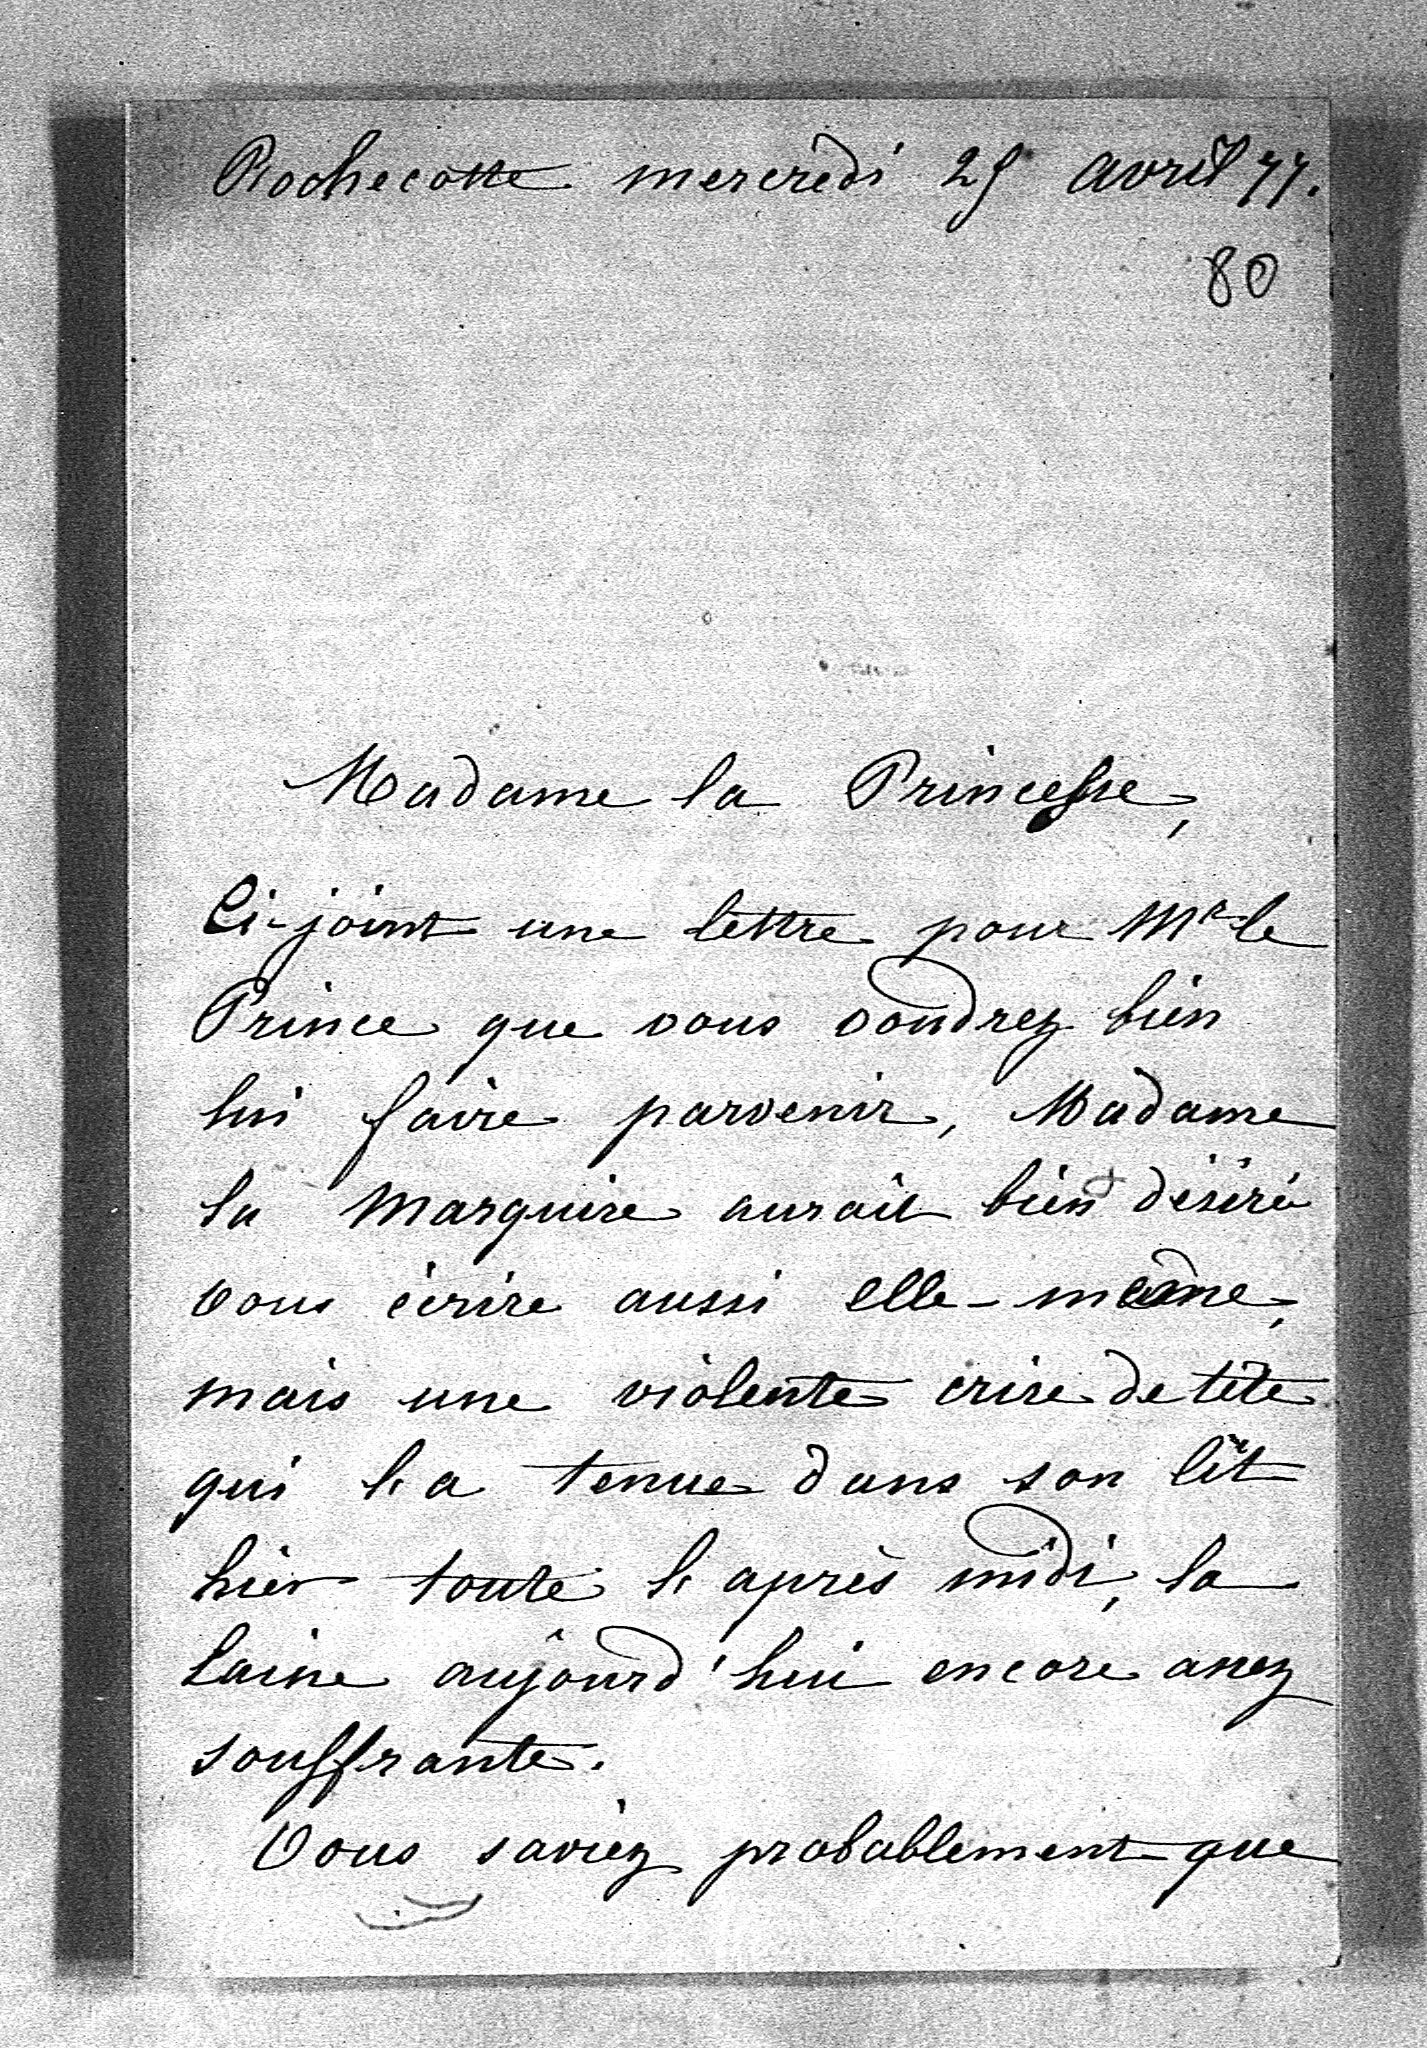 Rochecotte mercredi 25 avril 77.
80
Madame la Princesse,
Ci-joint une lettre pour Mr le
Prince que vous voudrez bien
lui faire parvenir, Madame
la Marquise aurait bien désiré
vous écrire aussi elle-même,
mais une violente crise de tête
qui l'a tenue dans son lit
hier toute l'après midi, la
laisse aujourd'hui encore assez
souffrante.
Vous saviez probablement que